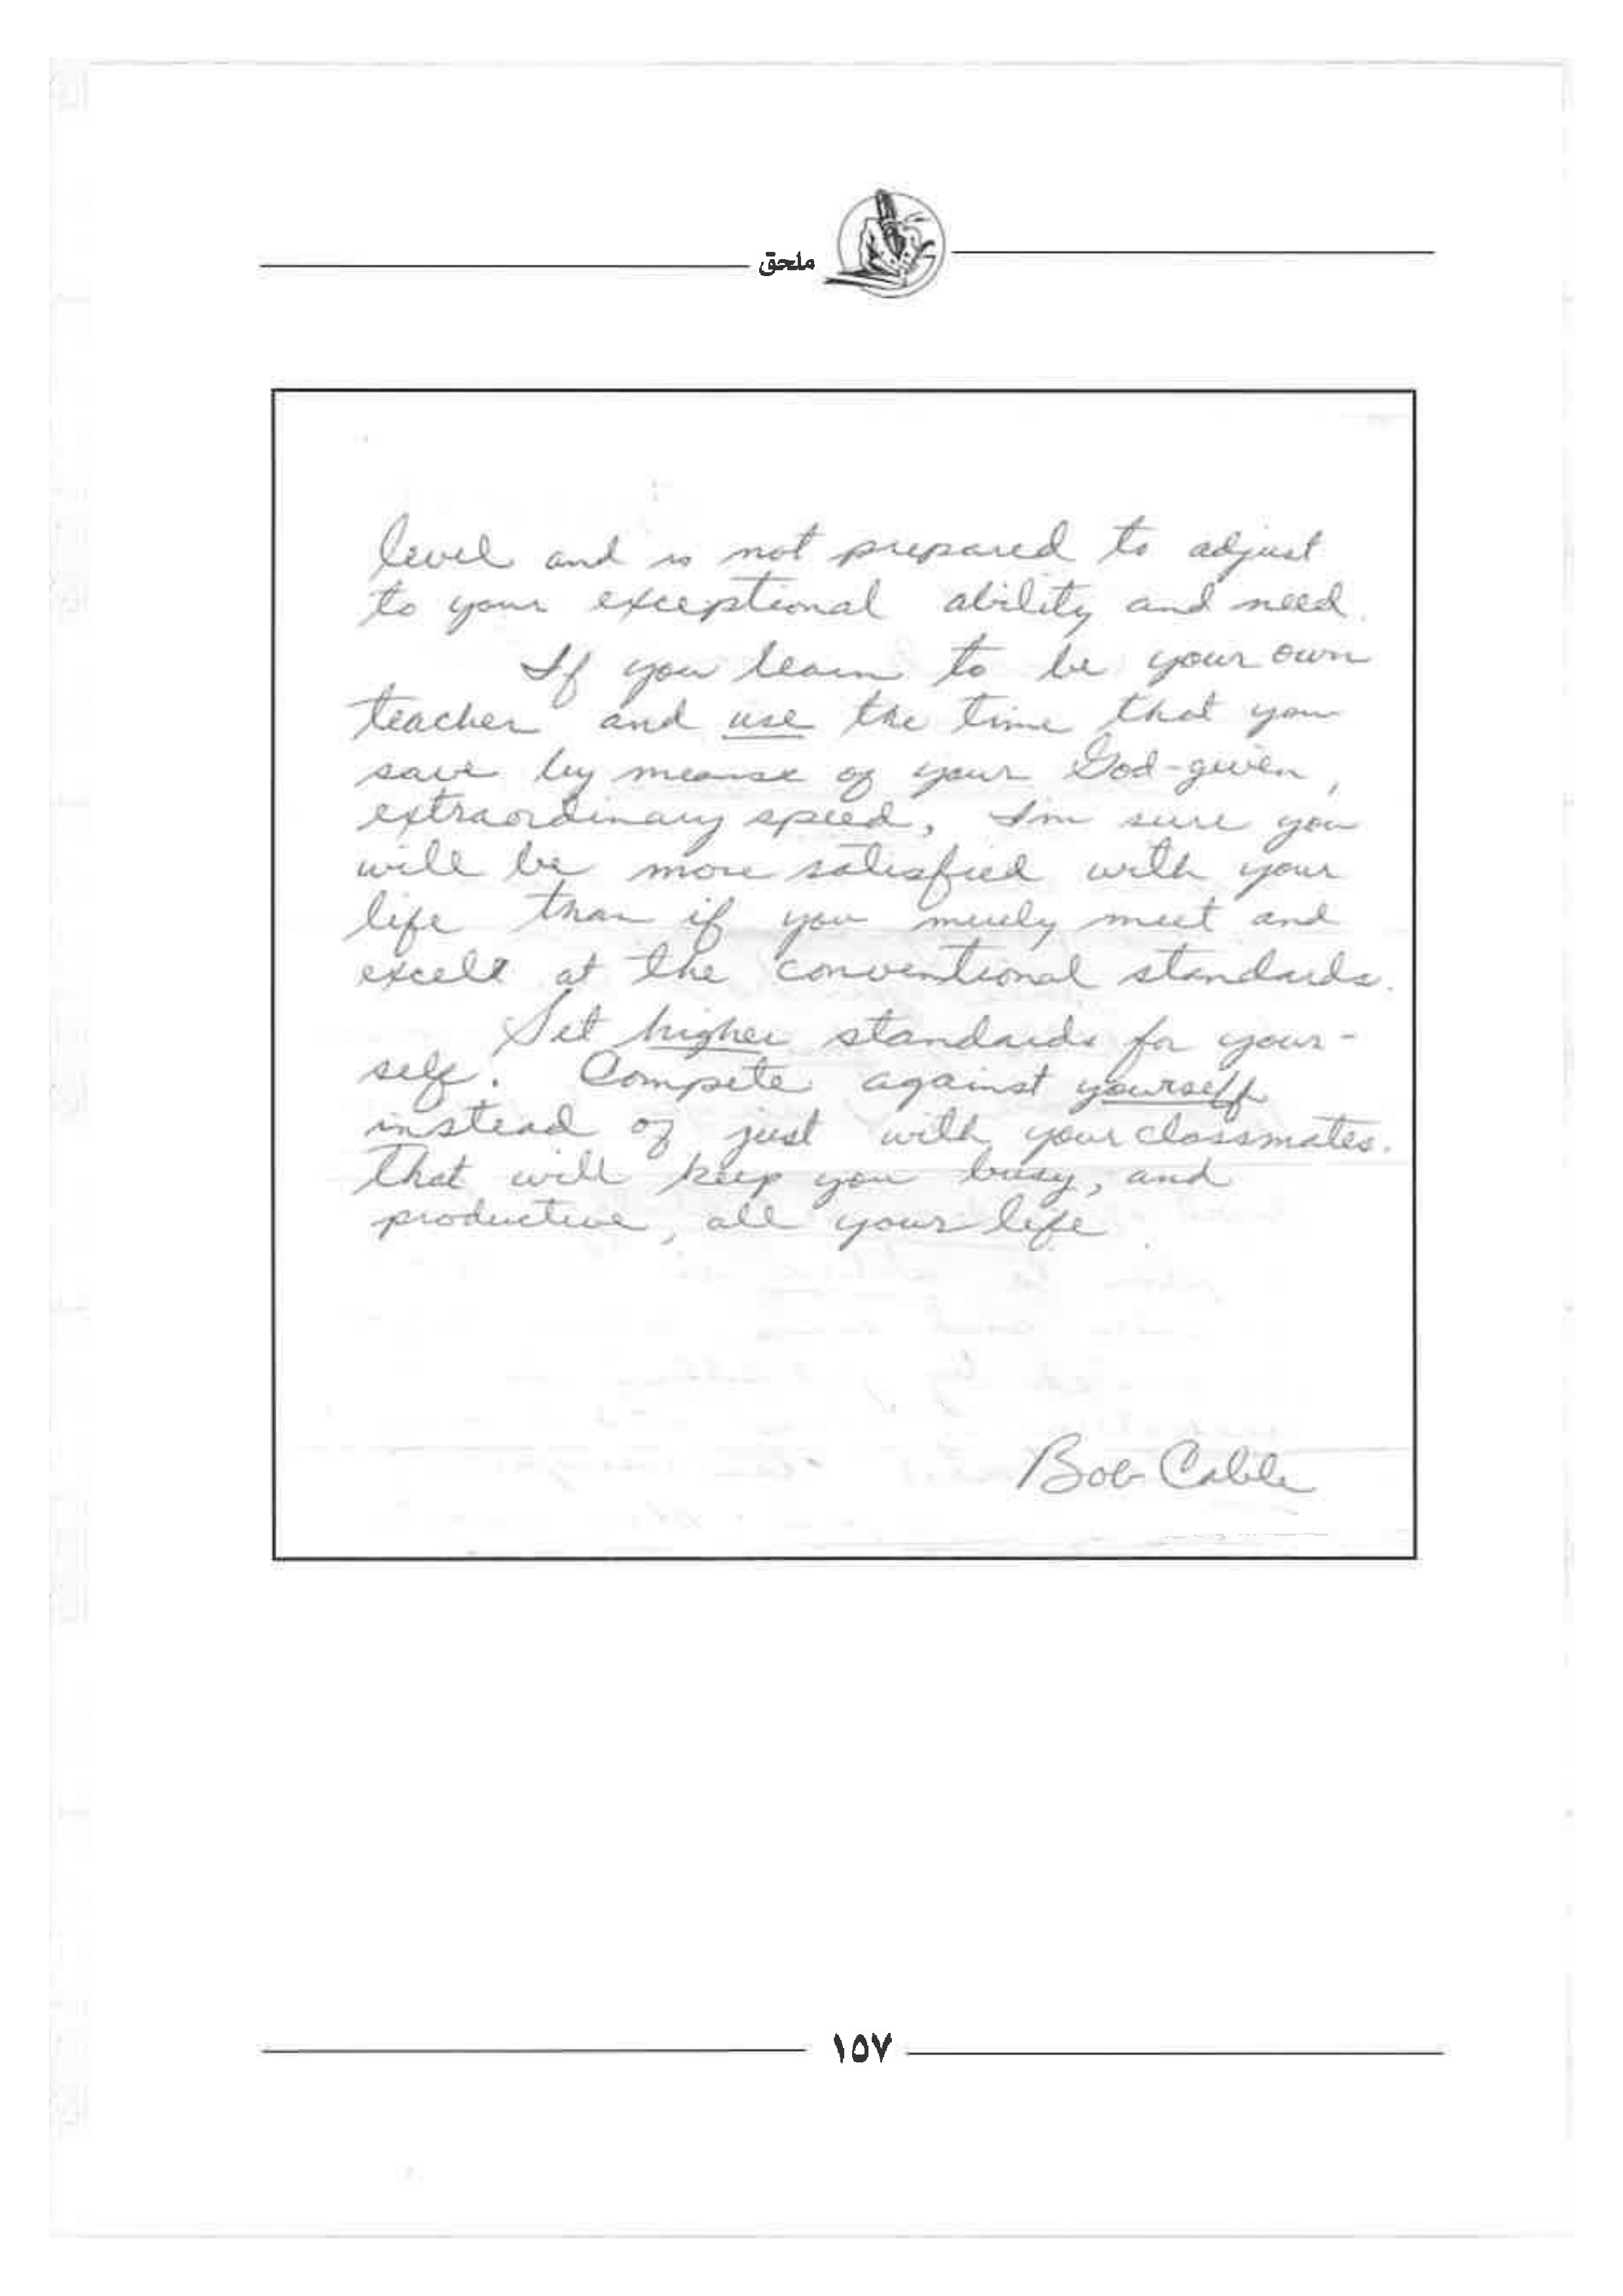 ملحق
level and is not prepared to adjust
to your exceptional ability and need.
If you learn to be your own
teacher and use the time that you
save by meanse of your God-given,
extraordinary speed, I'm sure you
will be more satisfied with your
life than if you merely meet and
excell at the conventional standards.
Set higher standards for your-
self. Compete against yourself
instead of just with your classmates.
That will keep you busy, and
productive, all your life.
Bob Cable
١٥٧